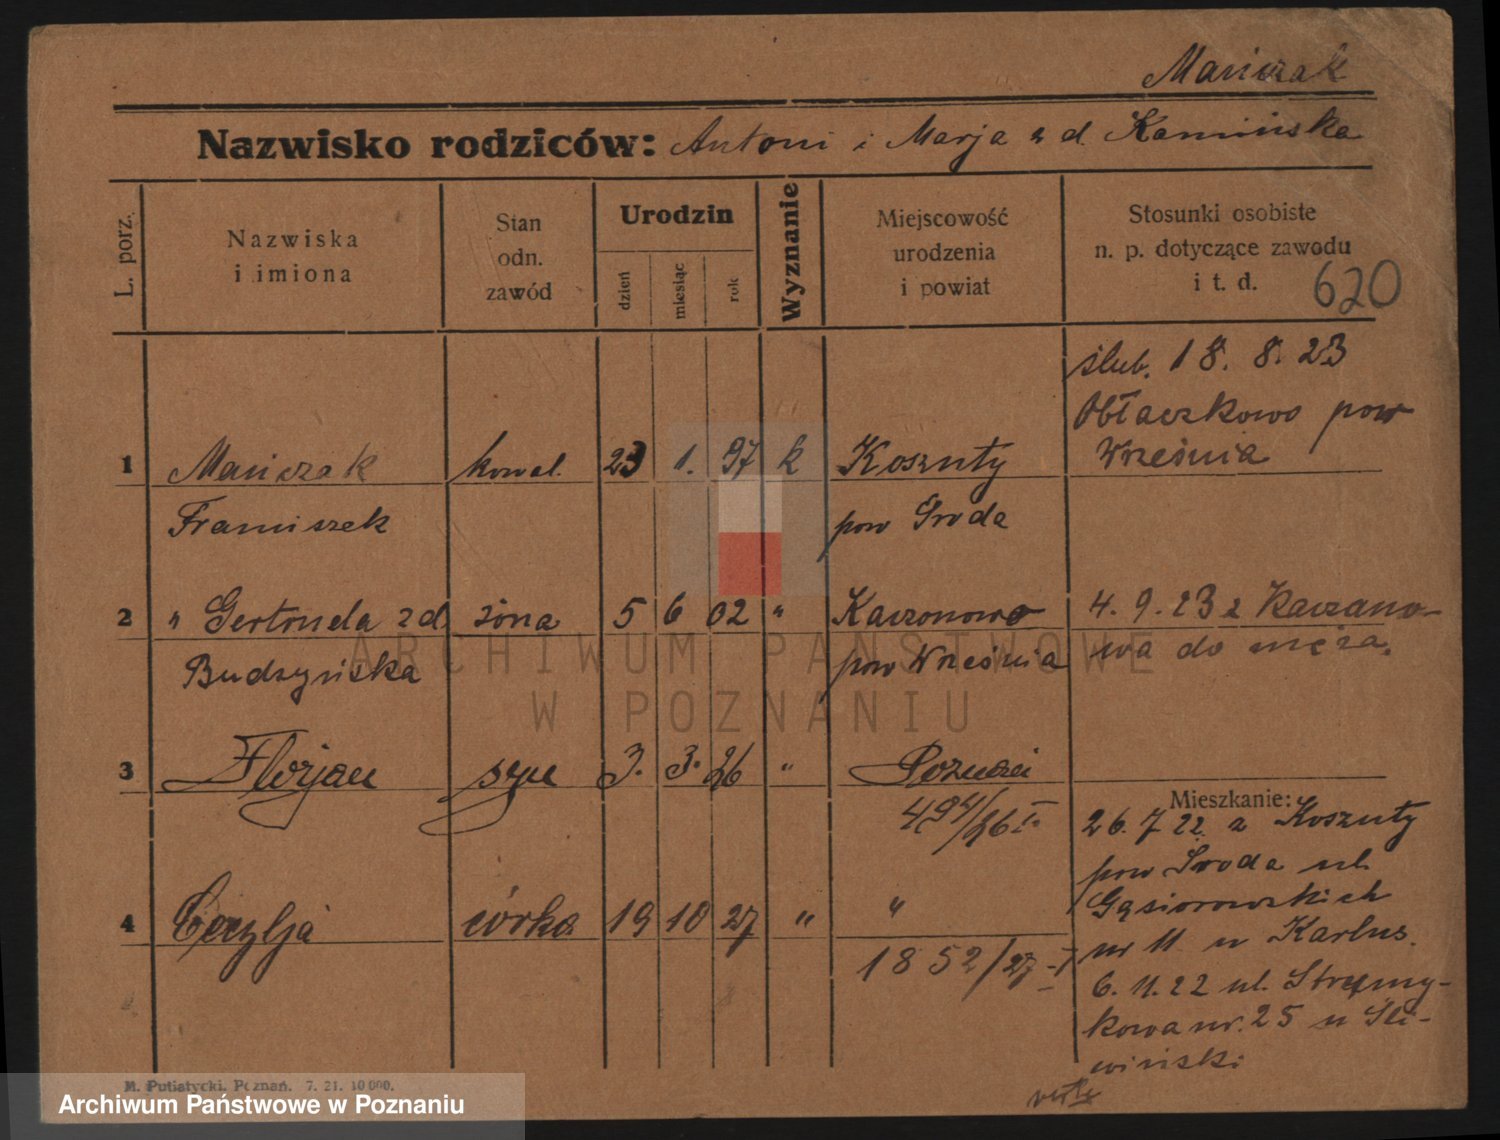 Mańczak
Nazwisko rodziców: Antoni i Marja z d. Kamińska
L. porz.
Nazwiska
i imiona
Stan
odn.
zawód
Urodzin
dzień
miesiąc
rok
Wyznanie
Miejscowość
urodzenia
i powiat
Stosunki osobiste
n. p. dotyczące zawodu
i t. d.
620
ślub. 18. 8. 23
Obłaczkowo pow
Września
1 Mańczak kowal. 23 1. 97 k Koszuty
Franciszek pow Środa
2 " Gertruda z d żona 5 6 02 " Kaczanowo 4. 9. 23 z Kaczano-
Budzyńska pow Września wa do męża.
3 Florjan syn 3. 3. 26 " Poznań
494/26 I.
Mieszkanie:
26. 7 22. z Koszuty
pow Środa ul.
Gąsiorowskich
nr 11 u Karlus.
6. 11. 22 ul. Strumy-
kowa nr. 25 u Śli-
wiński
4 Cecylja córka 19 10 27 " "
1852/27 - I
verte
M. Putiatycki. Poznań. 7. 21. 10 000.
ARCHIWUM PAŃSTWOWE
W POZNANIU
Archiwum Państwowe w Poznaniu